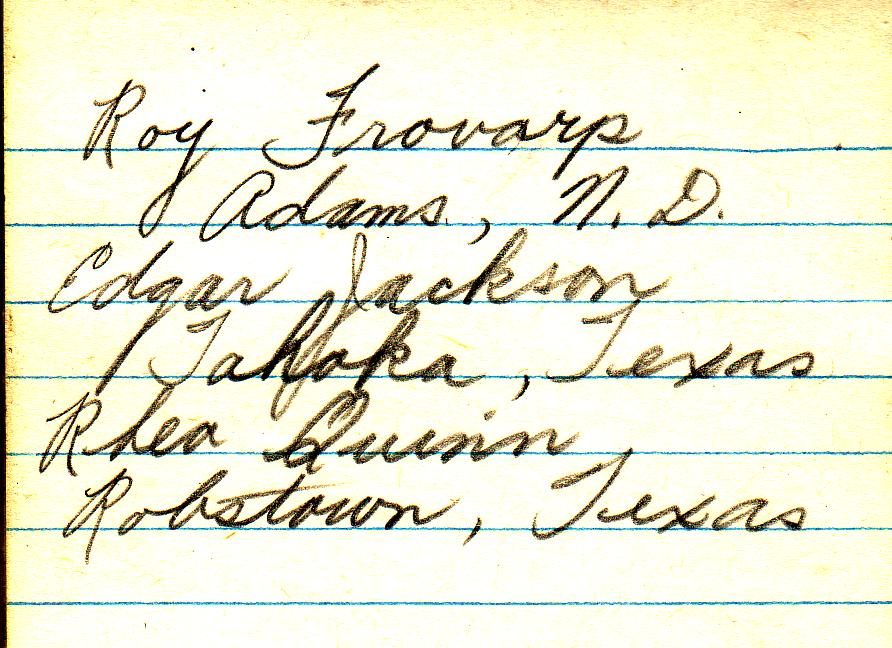 Roy Frovarp
Adams, N. D.
Edgar Jackson
Tahoka, Texas
Rhea Quinn
Robstown, Texas